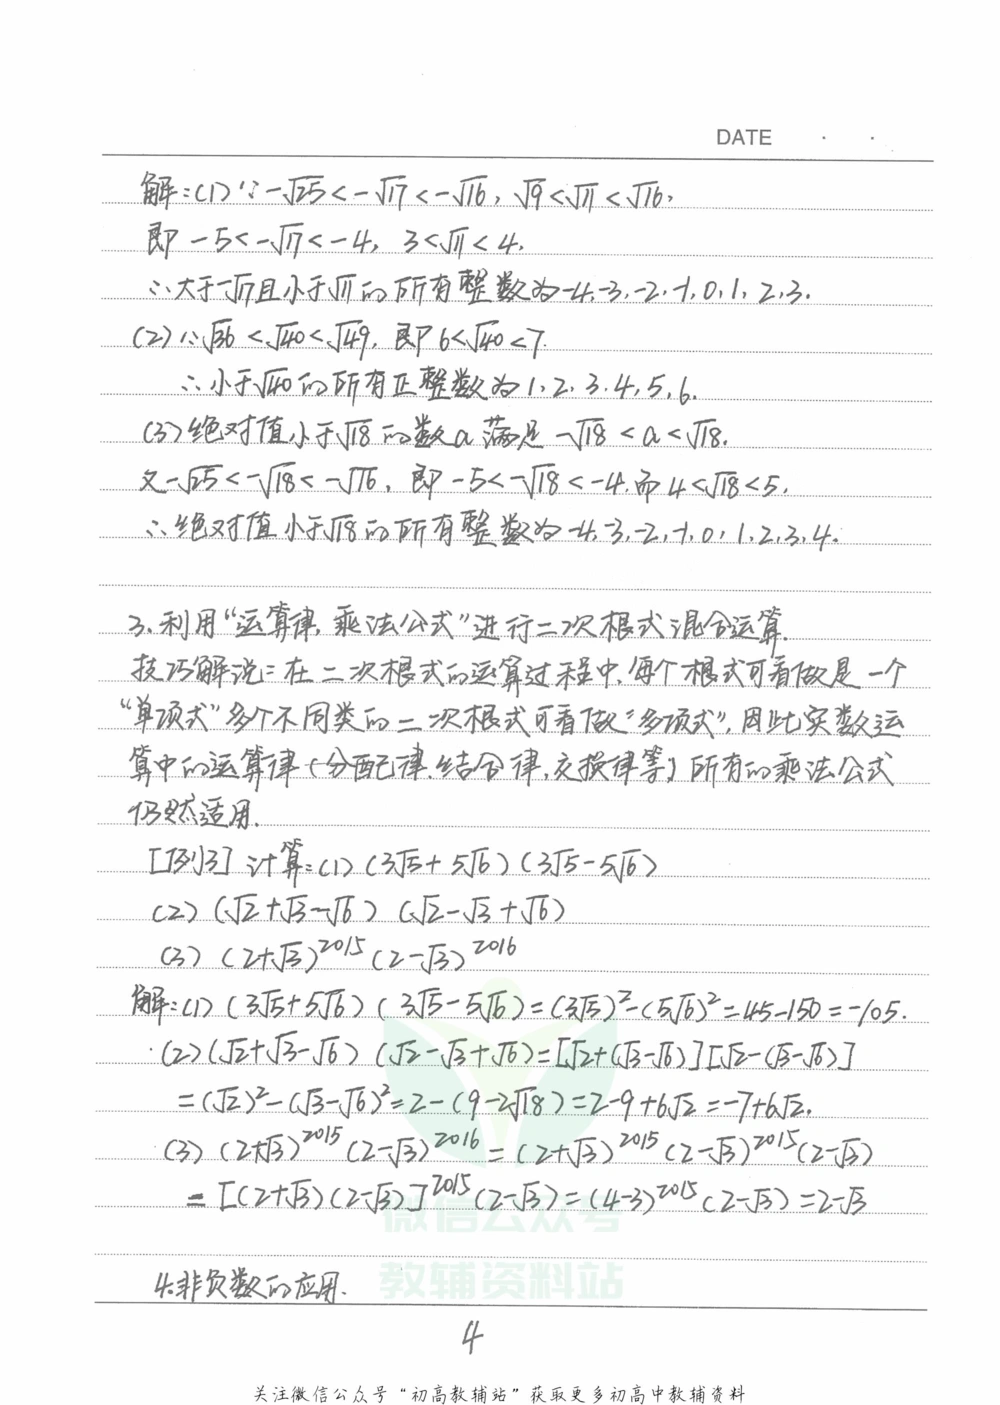 DATE · ·
解:(1)∵-√25<-√17<-√16,√9<√11<√16,
即-5<-√17<-4,3<√11<4,
∴大于-√17且小于√11的所有整数为-4,-3,-2,-1,0,1,2,3.
(2)∵√36<√40<√49,即6<√40<7.
∴小于√40的所有正整数为1,2,3,4,5,6.
(3)绝对值小于√18的数a满足-√18<a<√18.
又-√25<-√18<-√16,即-5<-√18<-4,而4<√18<5,
∴绝对值小于√18的所有整数为-4,-3,-2,-1,0,1,2,3,4.
3.利用“运算律,乘法公式”进行二次根式混合运算.
技巧解说:在二次根式的运算过程中,每个根式可看做是一个
“单项式”多个不同类的二次根式可看做“多项式”,因此实数运
算中的运算律(分配律、结合律,交换律等)所有的乘法公式
仍然适用.
[例3]计算:(1)(3√5+5√6)(3√5-5√6)
(2)(√2+√3-√6)(√2-√3+√6)
(3)(2+√3)²⁰¹⁵(2-√3)²⁰¹⁶
解:(1)(3√5+5√6)(3√5-5√6)=(3√5)²-(5√6)²=45-150=-105.
(2)(√2+√3-√6)(√2-√3+√6)=[√2+(√3-√6)][√2-(√3-√6)]
=(√2)²-(√3-√6)²=2-(9-2√18)=2-9+6√2=-7+6√2.
(3)(2+√3)²⁰¹⁵(2-√3)²⁰¹⁶=(2+√3)²⁰¹⁵(2-√3)²⁰¹⁵(2-√3)
=[(2+√3)(2-√3)]²⁰¹⁵(2-√3)=(4-3)²⁰¹⁵(2-√3)=2-√3
微信公众号
教辅资料站
4.非负数的应用.
4
关注微信公众号“初高教辅站”获取更多初高中教辅资料